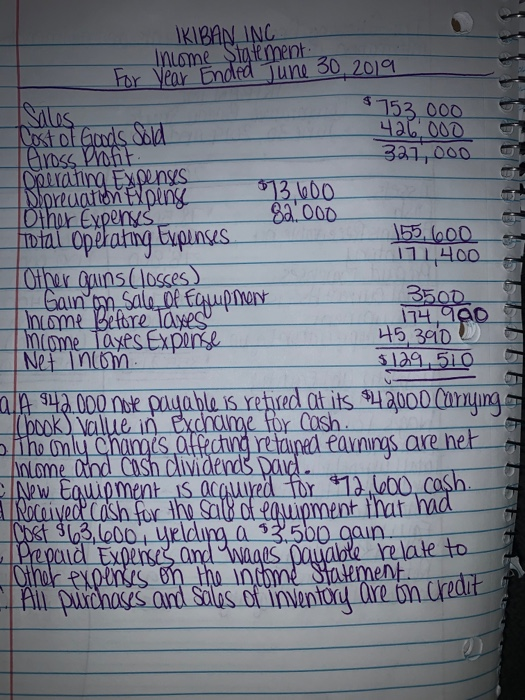 IKIBAN INC
Income Statement.
For Year Ended June 30, 2019
Sales $753,000
Cost of Goods Sold 426,000
Gross Profit. 327,000
Operating Expenses
Depreciation Expense $73,600
Other Expenses 82,000
Total Operating Expenses 155,600
171,400
Other gains (losses)
Gain on Sale of Equipment 3500
Income Before Taxes 174,900
Income Taxes Expense 45,390
Net Incom. $129,510
a. A $42,000 note payable is retired at its $42000 Carrying
(book) value in exchange for cash.
b. The only changes affecting retained earnings are net
income and cash dividends paid.
New Equipment is acquired for $72,600 cash.
d Received cash for the sale of equipment that had
cost $63,600, yielding a $3,500 gain.
Prepaid Expenses and Wages payable relate to
Other expenses on the income statement.
All purchases and sales of inventory are on credit